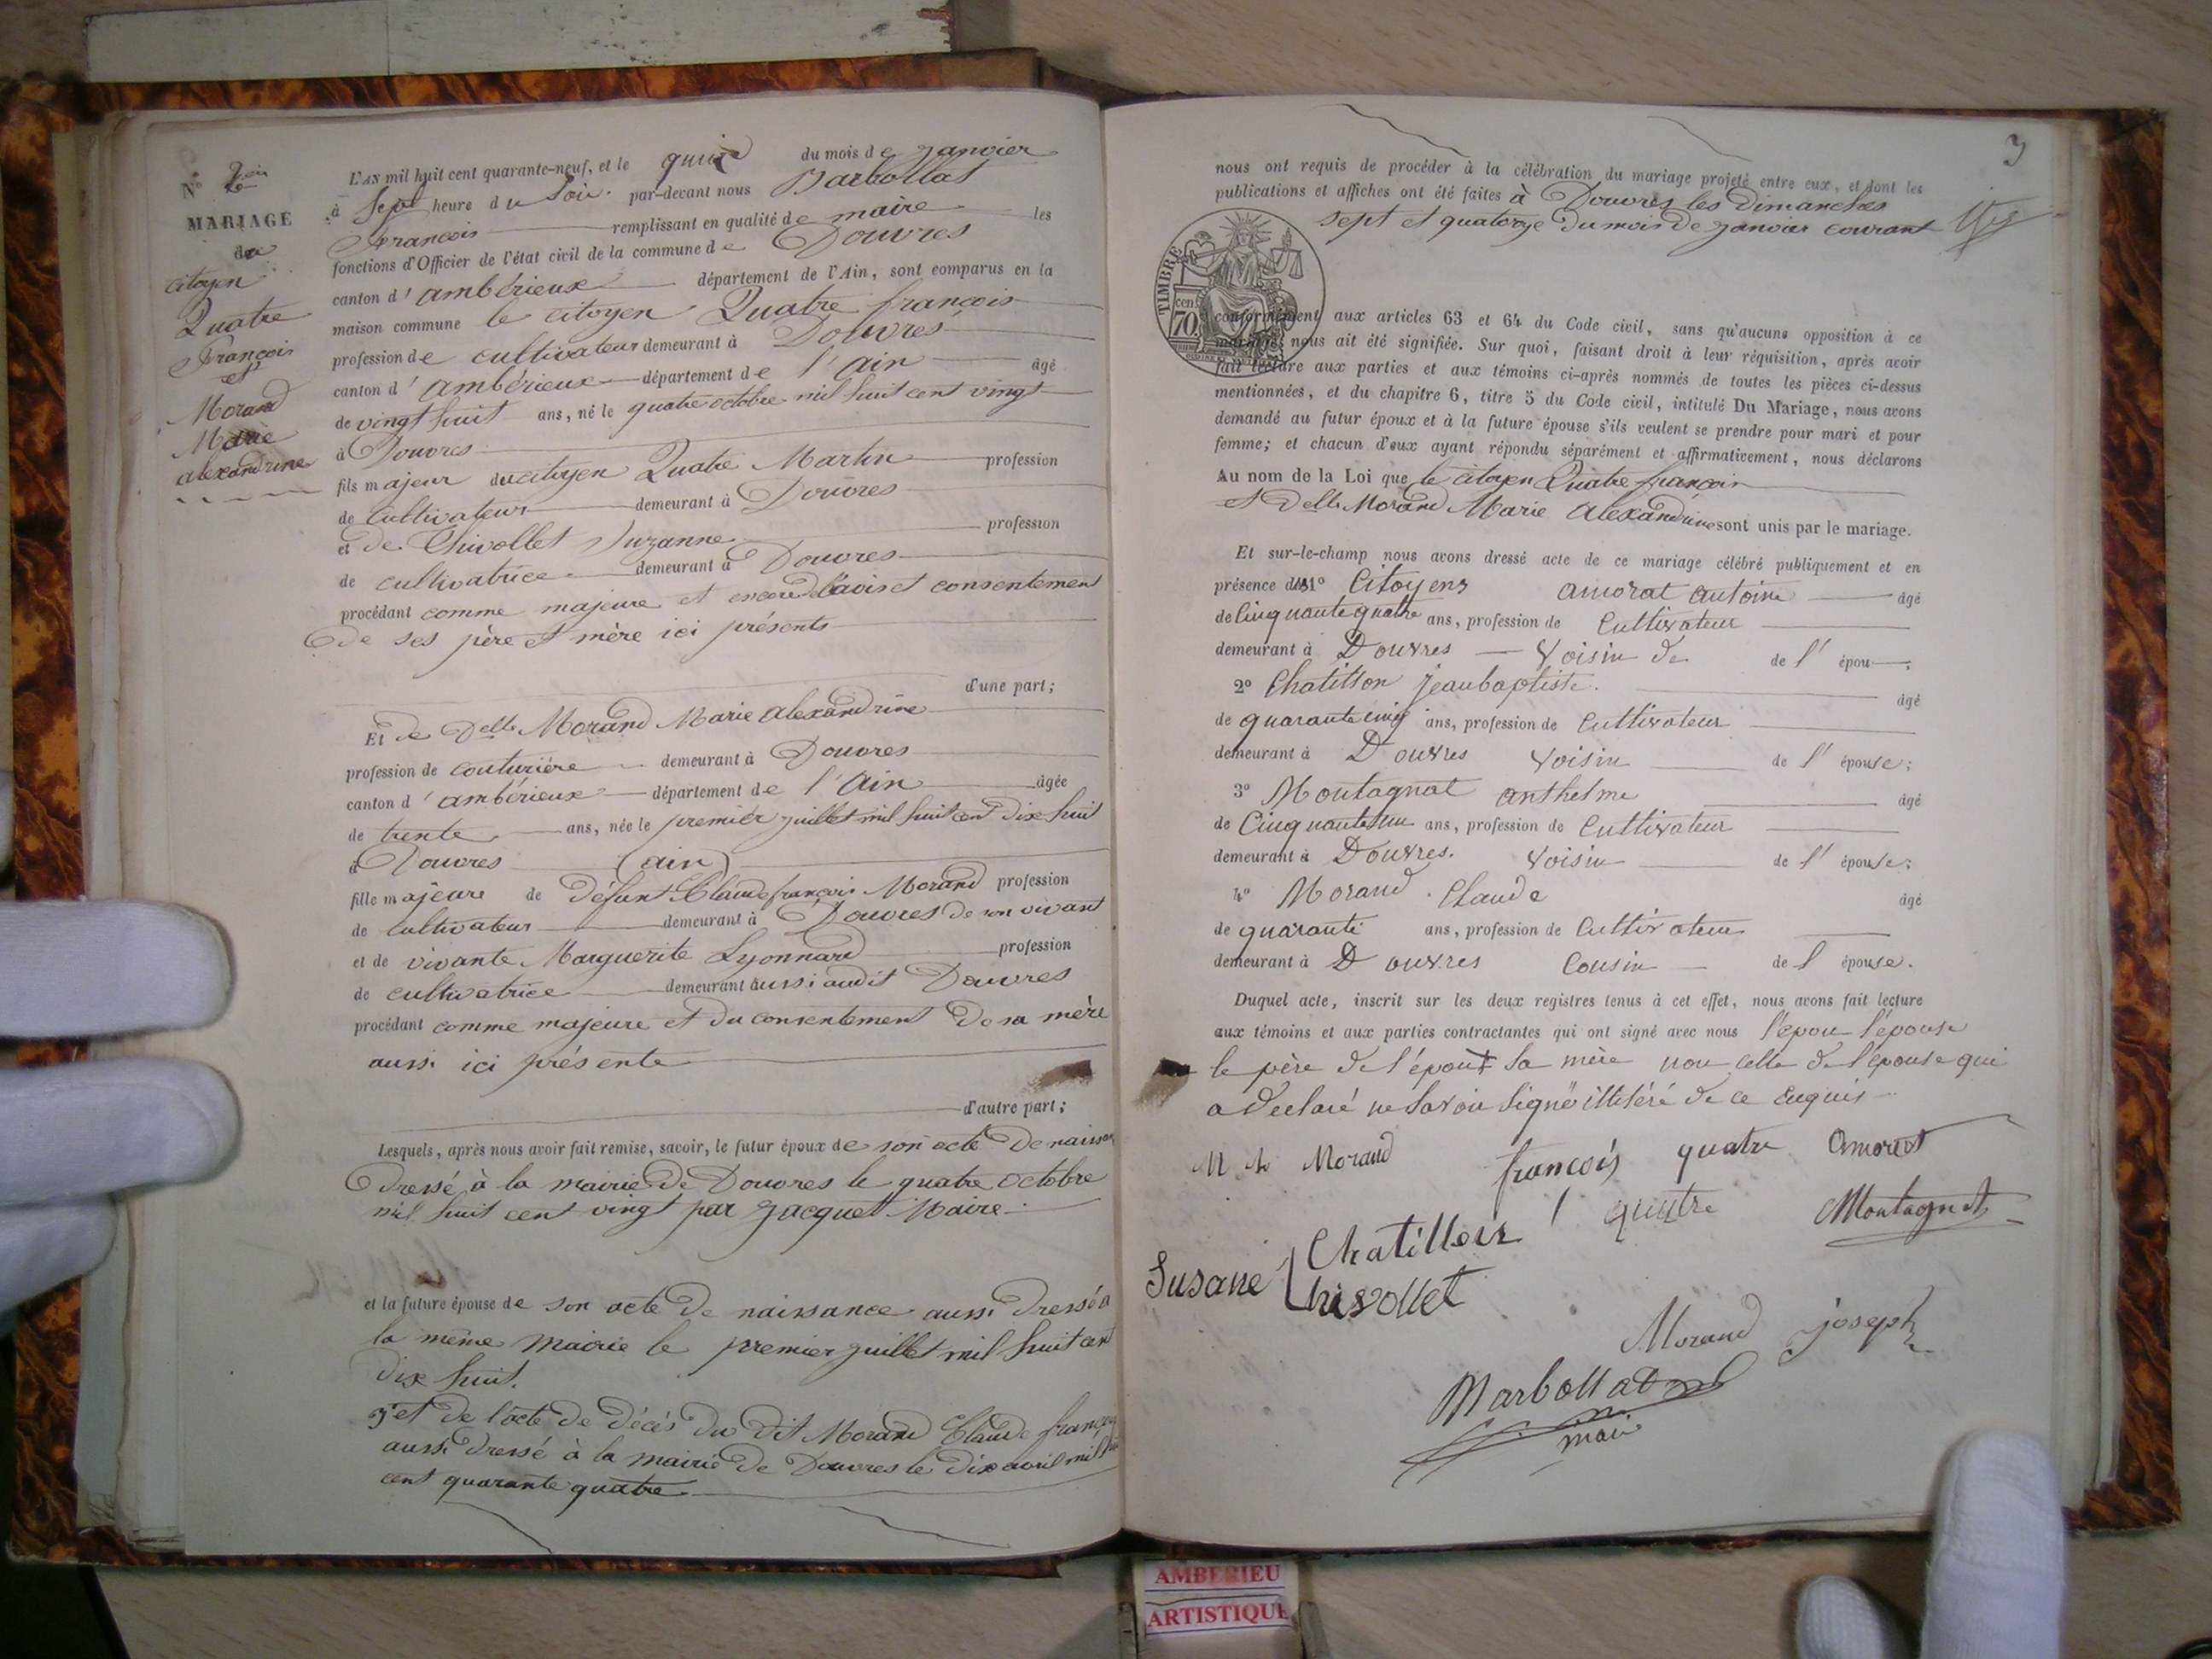 N° 2em
MARIAGE
du
citoyen
Quatre
François
et
Morand
Marie
alexandrine
L'AN mil huit cent quarante-neuf, et le du mois de janvier
à Sept heure du Soir par-devant nous Marbollat
François remplissant en qualité de maire les
fonctions d'Officier de l'état civil de la commune de Douvres
canton d'ambérieux département de l'Ain, sont comparus en la
maison commune le citoyen Quatre françois
profession de cultivateur demeurant à Douvres
canton d'ambérieux département de l'ain âgé
de vingt huit ans, né le quatre octobre mil huit cent vingt
à Douvres
fils majeur du citoyen Quatre Martin profession
de Cultivateur demeurant à Douvres
et de Chivollet Suzanne profession
de cultivatrice demeurant à Douvres
procédant comme majeure et encore de l'avis et consentement
de ses père et mère ici présents
d'une part;
Et de Delle Morand Marie Alexandrine
profession de couturière demeurant à Douvres
canton d'ambérieux département de l'Ain âgée
de trente ans, née le premier juillet mil huit cent dix huit
à Douvres (ain)
fille majeure de défunt Claude françois Morand profession
de Cultivateur demeurant à Douvres de son vivant
et de vivante Marguerite Lyonnard profession
de cultivatrice demeurant aussi audit Douvres
procédant comme majeure et du consentement de sa mère
aussi ici présente
d'autre part;
Lesquels, après nous avoir fait remise, savoir, le futur époux de son acte de naissan
dressé à la mairie de Douvres le quatre octobre
mil huit cent vingt par Jacquet Maire
et la future épouse de son acte de naissance aussi dressé à
la même Mairie le premier juillet mil huit cent
dix huit.
et de l'acte de décès du dit Morand Claude françois
aussi dressé à la mairie de Douvres le dix avril mil huit
cent quarante quatre
3
nous ont requis de procéder à la célébration du mariage projeté entre eux, et dont les
publications et affiches ont été faites à Douvres les Dimanches
sept et quatorze du mois de janvier courant
TIMBRE
70 cen.
conformément aux articles 63 et 64 du Code civil, sans qu'aucune opposition à ce
mariage nous ait été signifiée. Sur quoi, faisant droit à leur réquisition, après avoir
fait lecture aux parties et aux témoins ci-après nommés de toutes les pièces ci-dessus
mentionnées, et du chapitre 6, titre 5 du Code civil, intitulé Du Mariage, nous avons
demandé au futur époux et à la future épouse s'ils veulent se prendre pour mari et pour
femme; et chacun d'eux ayant répondu séparément et affirmativement, nous déclarons
Au nom de la Loi que le citoyen Quatre françois
et Delle Morand Marie Alexandrine sont unis par le mariage.
Et sur-le-champ nous avons dressé acte de ce mariage célébré publiquement et en
présence des 1° Citoyens Amorat Antoine âgé
de Cinquante quatre ans, profession de Cultivateur
demeurant à Douvres Voisin de de l'épou ;
2° Chatillon Jeanbaptiste. âgé
de quarante cinq ans, profession de Cultivateur
demeurant à Douvres Voisin de l'épouse;
3° Montagnat anthelme âgé
de Cinquante un ans, profession de Cultivateur
demeurant à Douvres. Voisin de l'épouse;
4° Morand Claude âgé
de quarante ans, profession de Cultivateur
demeurant à Douvres Cousin de l'épouse.
Duquel acte, inscrit sur les deux registres tenus à cet effet, nous avons fait lecture
aux témoins et aux parties contractantes qui ont signé avec nous l'epou l'épouse
le père de l'époux sa mère non celle de l'épouse qui
a declaré ne savoir signé illitéré de ce Enquis
M A Morand françois quatre Amorat
quatre Montagnat
Chatillon
Susane Chivollet
Morand joseph
Marbollat
maire
AMBERIEU
ARTISTIQUE